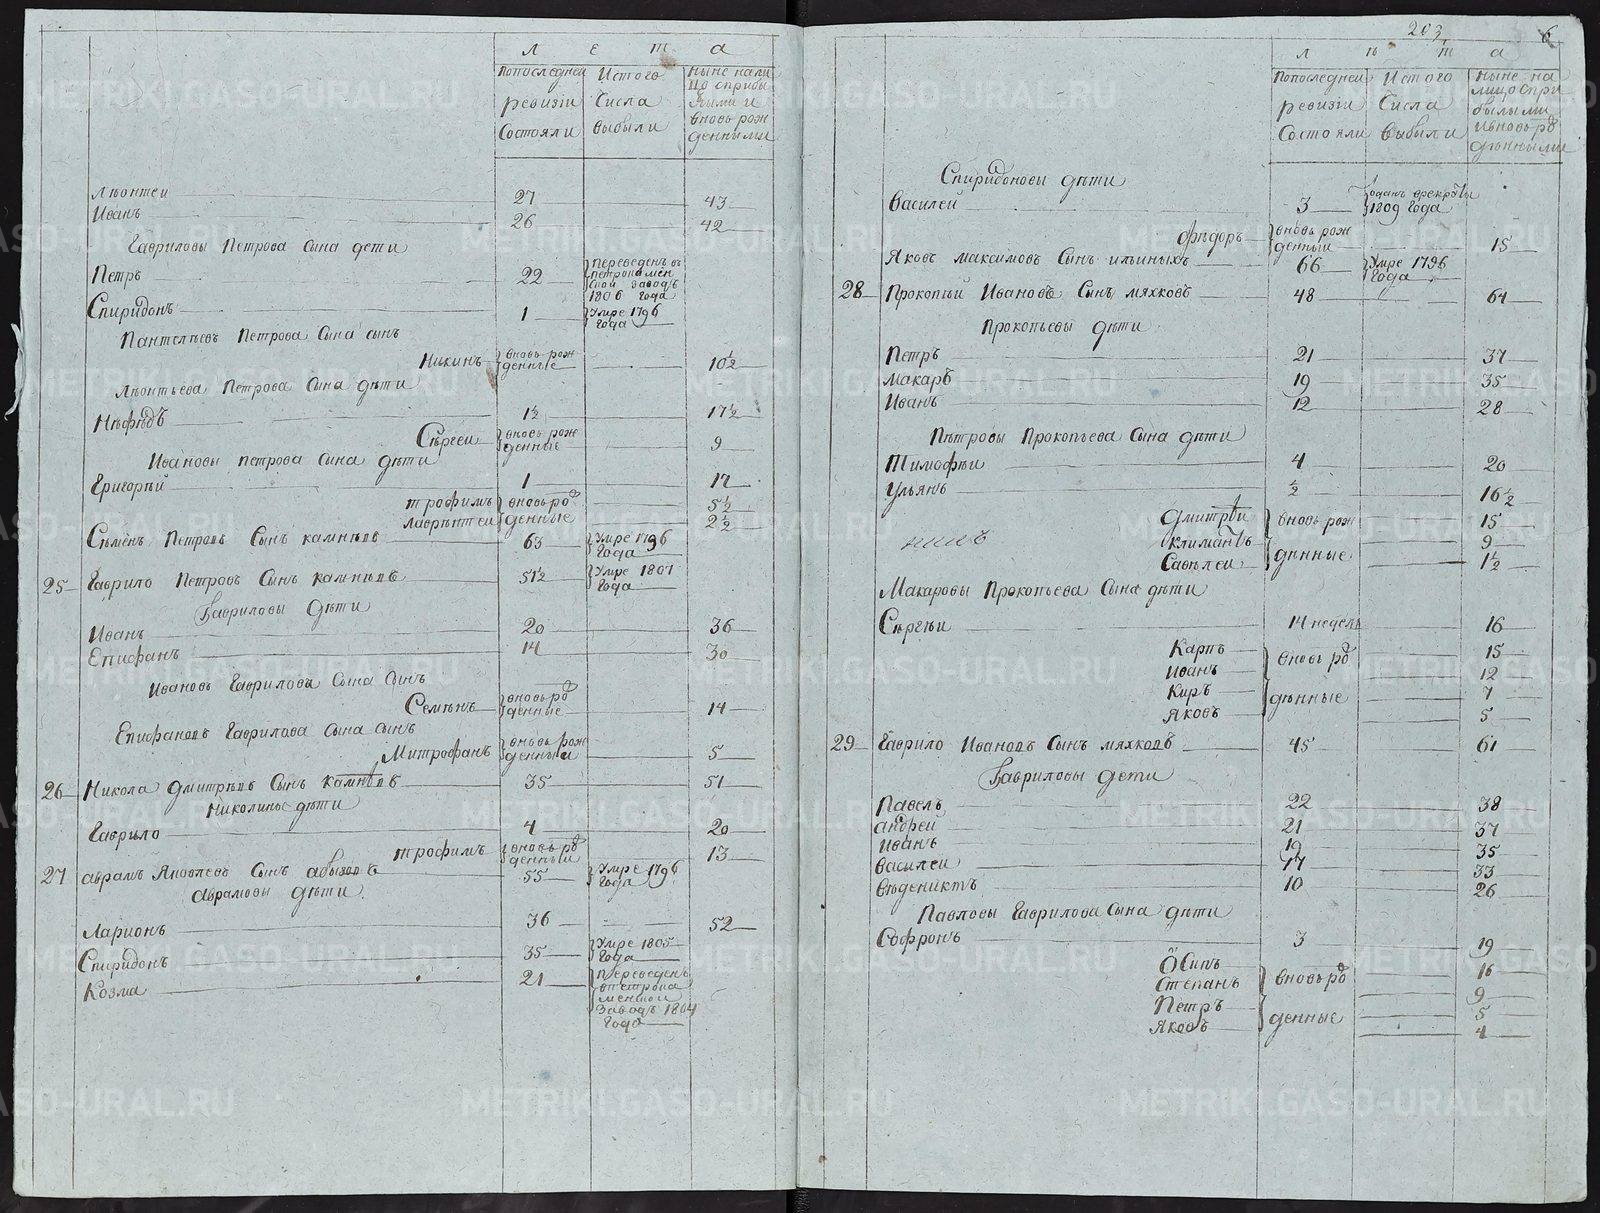 л е т а
попоследней ревизіи состояли
Истого числа выбыли
ныне налицо сприбылыми и вновь рожденными
Лѣонтеи 27 43
Иванъ 26 42
Гавриловы Петрова сына дети
Петръ 22 переведенъ в Петрокаменской заводъ 1806 года
Спиридонъ 1 Умре 1796 года
Пантелѣевъ Петрова сына сынъ
Никинъ вновь рожденные 10½
Лѣонтьева Петрова сына дѣти
Нѣфѣдъ 1½ 17½
Сѣргеи вновь рожденные 9
Ивановы петрова сына дѣти
Григорѣй 1 17
трофимъ вновь рожденные 5½
лаврѣнтеи 2½
Сѣменъ Петровъ сынъ камнѣвъ 63 Умре 1796 года
25 Гаврило Петровъ сынъ камнѣвъ 51½ Умре 1801 года
Гавриловы дѣти
Иванъ 20 36
Епифанъ 14 30
Ивановъ Гаврилова сына сынъ
Семѣнъ вновь рожденные 14
Епифановъ Гаврилова сына сынъ
Митрофанъ вновь рожденныи 5
26 Никола Дмитрѣвъ сынъ камнѣвъ 35 51
Николины дѣти
Гаврило 4 20
трофимъ вновь рожденныи 13
27 аврамъ Яковлевъ сынъ 55 Умре 1796 года
аврамовы дѣти
Ларионъ 36 52
Спиридонъ 35 Умре 1805 года
Козма 21 Переведенъ впетрокаменской заводъ 1804 года
203 6
л ѣ т а
попоследней ревизіи состояли
Истого числа выбыли
ныне налицо сприбылыми ивновь рождѣнными
Спиридоновы дѣти
Василей 3 одатъ врекруты 1809 года
Фѣдоръ вновь рожденныи 15
Яковъ максимовъ сынъ ильиныхъ 66 Умре 1796 года
28 Прокопѣй Ивановъ сынъ мяхковъ 48 64
Прокопьевы дѣти
Петръ 21 37
Макаръ 19 35
Иванъ 12 28
Пѣтровы Прокопьева сына дѣти
Тимофѣи 4 20
Ульянъ ½ 16½
Дмитрѣи вновь рождѣнные 15
Климантъ 9
Савѣлеи 1½
Макаровы Прокопьева сына дѣти
Сѣргѣи 14 недель 16
Карпъ вновь рождѣнные 15
Иванъ 12
Киръ 7
Яковъ 5
29 Гаврило Ивановъ сынъ мяхковъ 45 61
Гавриловы дети
Павелъ 22 38
андрей 21 37
Иванъ 19 35
Василеи 17 33
Вѣдениктъ 10 26
Павловы Гаврилова сына дѣти
Софронъ 3 19
Осипъ вновь рожденные 16
Степанъ 9
Петръ 5
Яковъ 4
METRIKI.GASO-URAL.RU